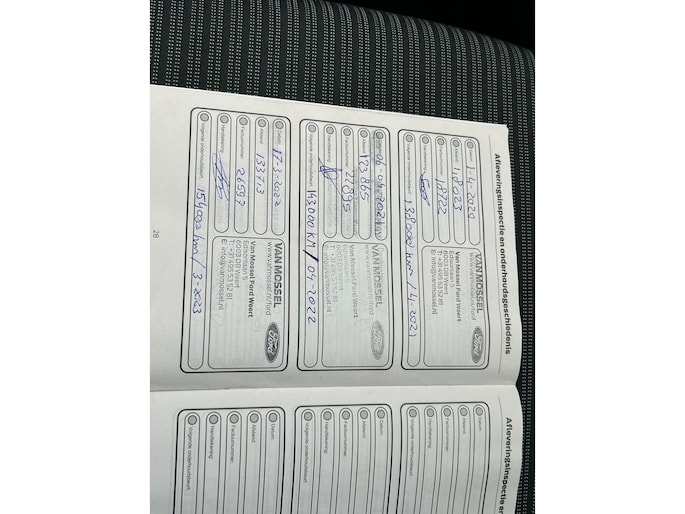 Afleveringsinspectie en onderhoudsgeschiedenis
Datum: 1-4-2020
Afstand: 118023
Factuurnummer: 18722
Handtekening:
Volgende onderhoudsbeurt: 138000 km / 4-2021
VAN MOSSEL
www.vanmossel.nl/ford
Van Mossel Ford Weert
Edisonlaan 5
6003 DB Weert
T: +31 495 53 52 81
E: info@vanmossel.nl
Ford
Datum: 06-04-2021
Afstand: 123865
Factuurnummer: 22895
Handtekening:
Volgende onderhoudsbeurt: 143.000 KM / 04-2022
VAN MOSSEL
www.vanmossel.nl/ford
Van Mossel Ford Weert
Edisonlaan
6003 DB Weert
T: +31 495 53 52 81
E: info@vanmossel.nl
Ford
Datum: 17-3-2022
Afstand: 133713
Factuurnummer: 26597
Handtekening:
Volgende onderhoudsbeurt: 154000 km / 3-2023
VAN MOSSEL
www.vanmossel.nl/ford
Van Mossel Ford Weert
Edisonlaan 5
6003 DB Weert
T: +31 495 53 52 81
E: info@vanmossel.nl
Ford
28
Afleveringsinspectie en
Datum:
Afstand:
Factuurnummer:
Handtekening:
Volgende onderhoudsbeurt:
Datum:
Afstand:
Factuurnummer:
Handtekening:
Volgende onderhoudsbeurt:
Datum:
Afstand:
Factuurnummer:
Handtekening:
Volgende onderhoudsbeurt: